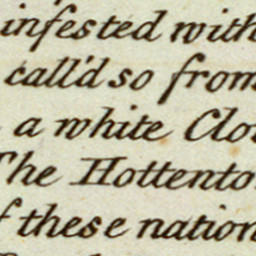 infested with
call'd so from
a white Clo
The Hottento
f these nation